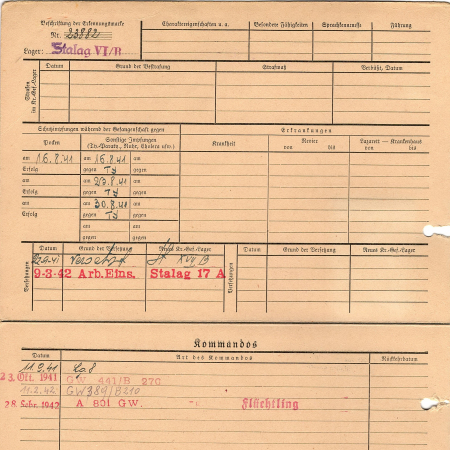 Beschriftung der Erkennungsmarke
Nr. 23882
Lager: Stalag VI/B
Charaktereigenschaften u. a.
Besondere Fähigkeiten
Sprachkenntnisse
Führung
Strafen im Kr.-Gef.-Lager
Datum
Grund der Bestrafung
Strafmaß
Verbüßt, Datum
Schutzimpfungen während der Gefangenschaft gegen
Erkrankungen
Pocken
Sonstige Impfungen
(Ty.-Paraty., Ruhr, Cholera usw.)
Krankheit
Revier
von — bis
Lazarett — Krankenhaus
von — bis
am 16.8.41 am 16.8.41 am
Erfolg gegen Ty gegen
am am 23.8.41 am
Erfolg gegen Ty gegen
am am 30.8.41 am
Erfolg gegen Ty gegen
am am
gegen gegen
Versetzungen
Datum
Grund der Versetzung
Neues Kr.-Gef.-Lager
Versetzungen
Datum
Grund der Versetzung
Neues Kr.-Gef.-Lager
XVII B
9-3-42 Arb.Eins. Stalag 17 A
Kommandos
Datum
Art des Kommandos
Rückkehrdatum
11.9.41
23. Okt. 1941 GW 441/B 270
11.2.42 GW 389/B210
28. Febr. 1942 A 801 GW. Flüchtling